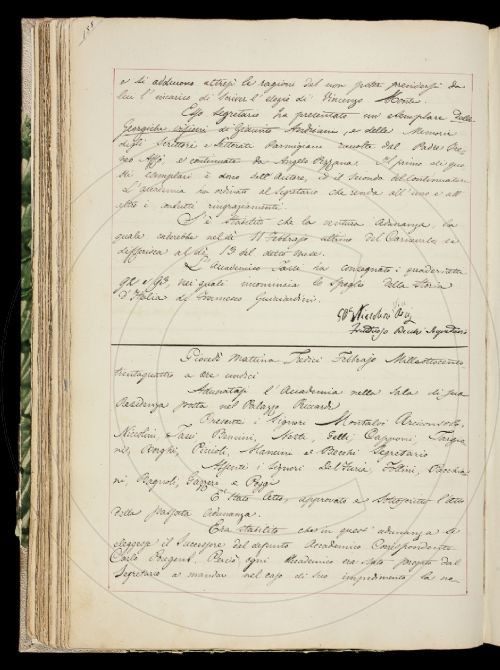 188
e si adducono altresì le ragioni del non poter prendersi da
lui l'incarico di scriver l'elogio di Vincenzo Monti.
Esso Segretario ha presentato un esemplare delle
Georgiche di Giacinto Andrà, e delle Memorie
degli Scrittori e Letterati Parmigiani raccolte dal Padre Ire-
neo Affò e continuate da Angelo Pezzana. Il primo di que-
sti esemplari è dono dell'Autore, ed il secondo del Continuatore.
L'Accademia ha ordinato al Segretario che renda all'uno e all'
altro i condutti ringraziamenti.
S'è stabilito che la ventura Adunanza, la
quale caderebbe nel dì 11 Febbrajo ultimo del Carnevale si
differisca al dì 13 del detto mese.
L'Accademico Tassi ha consegnato i quaderni
92 e 93 nei quali incomincia lo spoglio della Storia
d'Italia di Francesco Guicciardini.
Fruttuoso Becchi Segretario
Giovedì mattina Tredici Febbrajo Milleottocento-
trentaquattro a ore undici
Adunatasi l'Accademia nella Sala di sua
Residenza posta nel Palazzo Riccardi
Presenti i Signori Montalvi Arciconsolo,
Nicolini, Tassi, Bencini, Nesti, Gelli, Capponi, Targio-
ni, Borghi, Piccioli, Mancini e Becchi Segretario
Assenti i Signori Del Furia, Follini, Zacchiro-
li, Bagnoli, Gazzeri e Poggi
È stato letto, approvato e sottoscritto l'atto
della passata adunanza.
Era stabilito che in quest'adunanza si
eleggesse il Successore del defunto Accademico Corrispondente
Carlo Bregent. Perciò ogni Accademico era stato pregato dal
Segretario a mandar nel caso di suo impedimento la no-